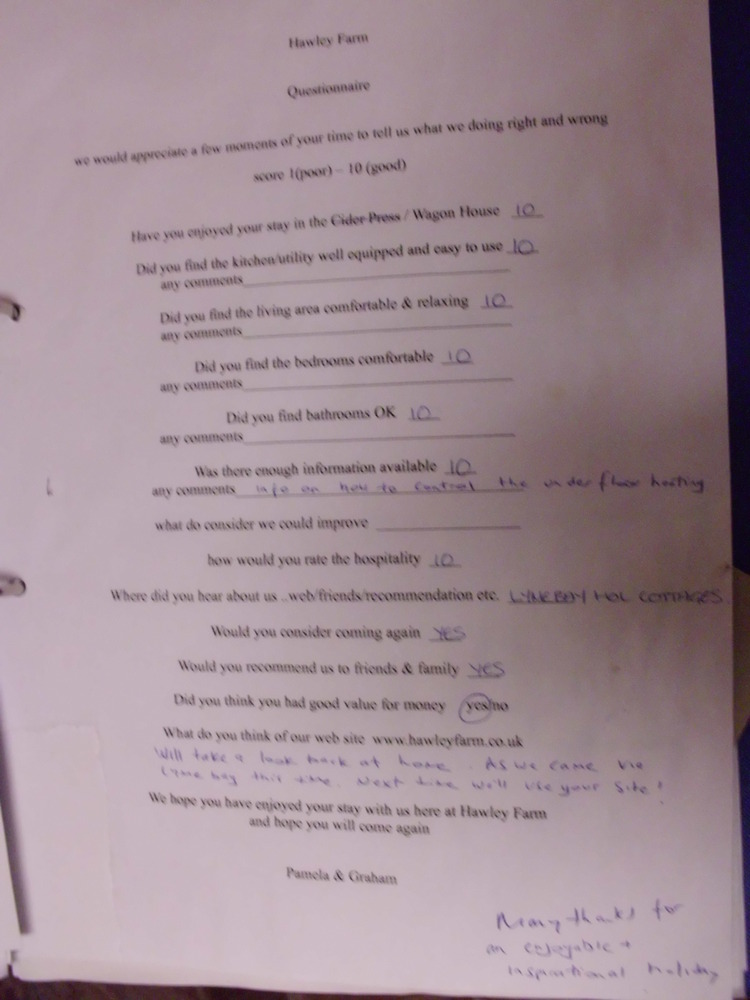 Hawley Farm
Questionnaire
we would appreciate a few moments of your time to tell us what we doing right and wrong
score 1(poor) – 10 (good)
Have you enjoyed your stay in the Cider Press / Wagon House 10
Did you find the kitchen/utility well equipped and easy to use 10
any comments
Did you find the living area comfortable & relaxing 10
any comments
Did you find the bedrooms comfortable 10
any comments
Did you find bathrooms OK 10
any comments
Was there enough information available 10
any comments info on how to control the under floor heating
what do consider we could improve
how would you rate the hospitality 10
Where did you hear about us ..web/friends/recommendation etc. LYME BAY HOL COTTAGES
Would you consider coming again YES
Would you recommend us to friends & family YES
Did you think you had good value for money yes/no
What do you think of our web site www.hawleyfarm.co.uk
Will take a look back at home. As we came via
Lyme bay this time. Next time we'll use your site!
We hope you have enjoyed your stay with us here at Hawley Farm
and hope you will come again
Pamela & Graham
Many thanks for
an enjoyable +
inspirational holiday